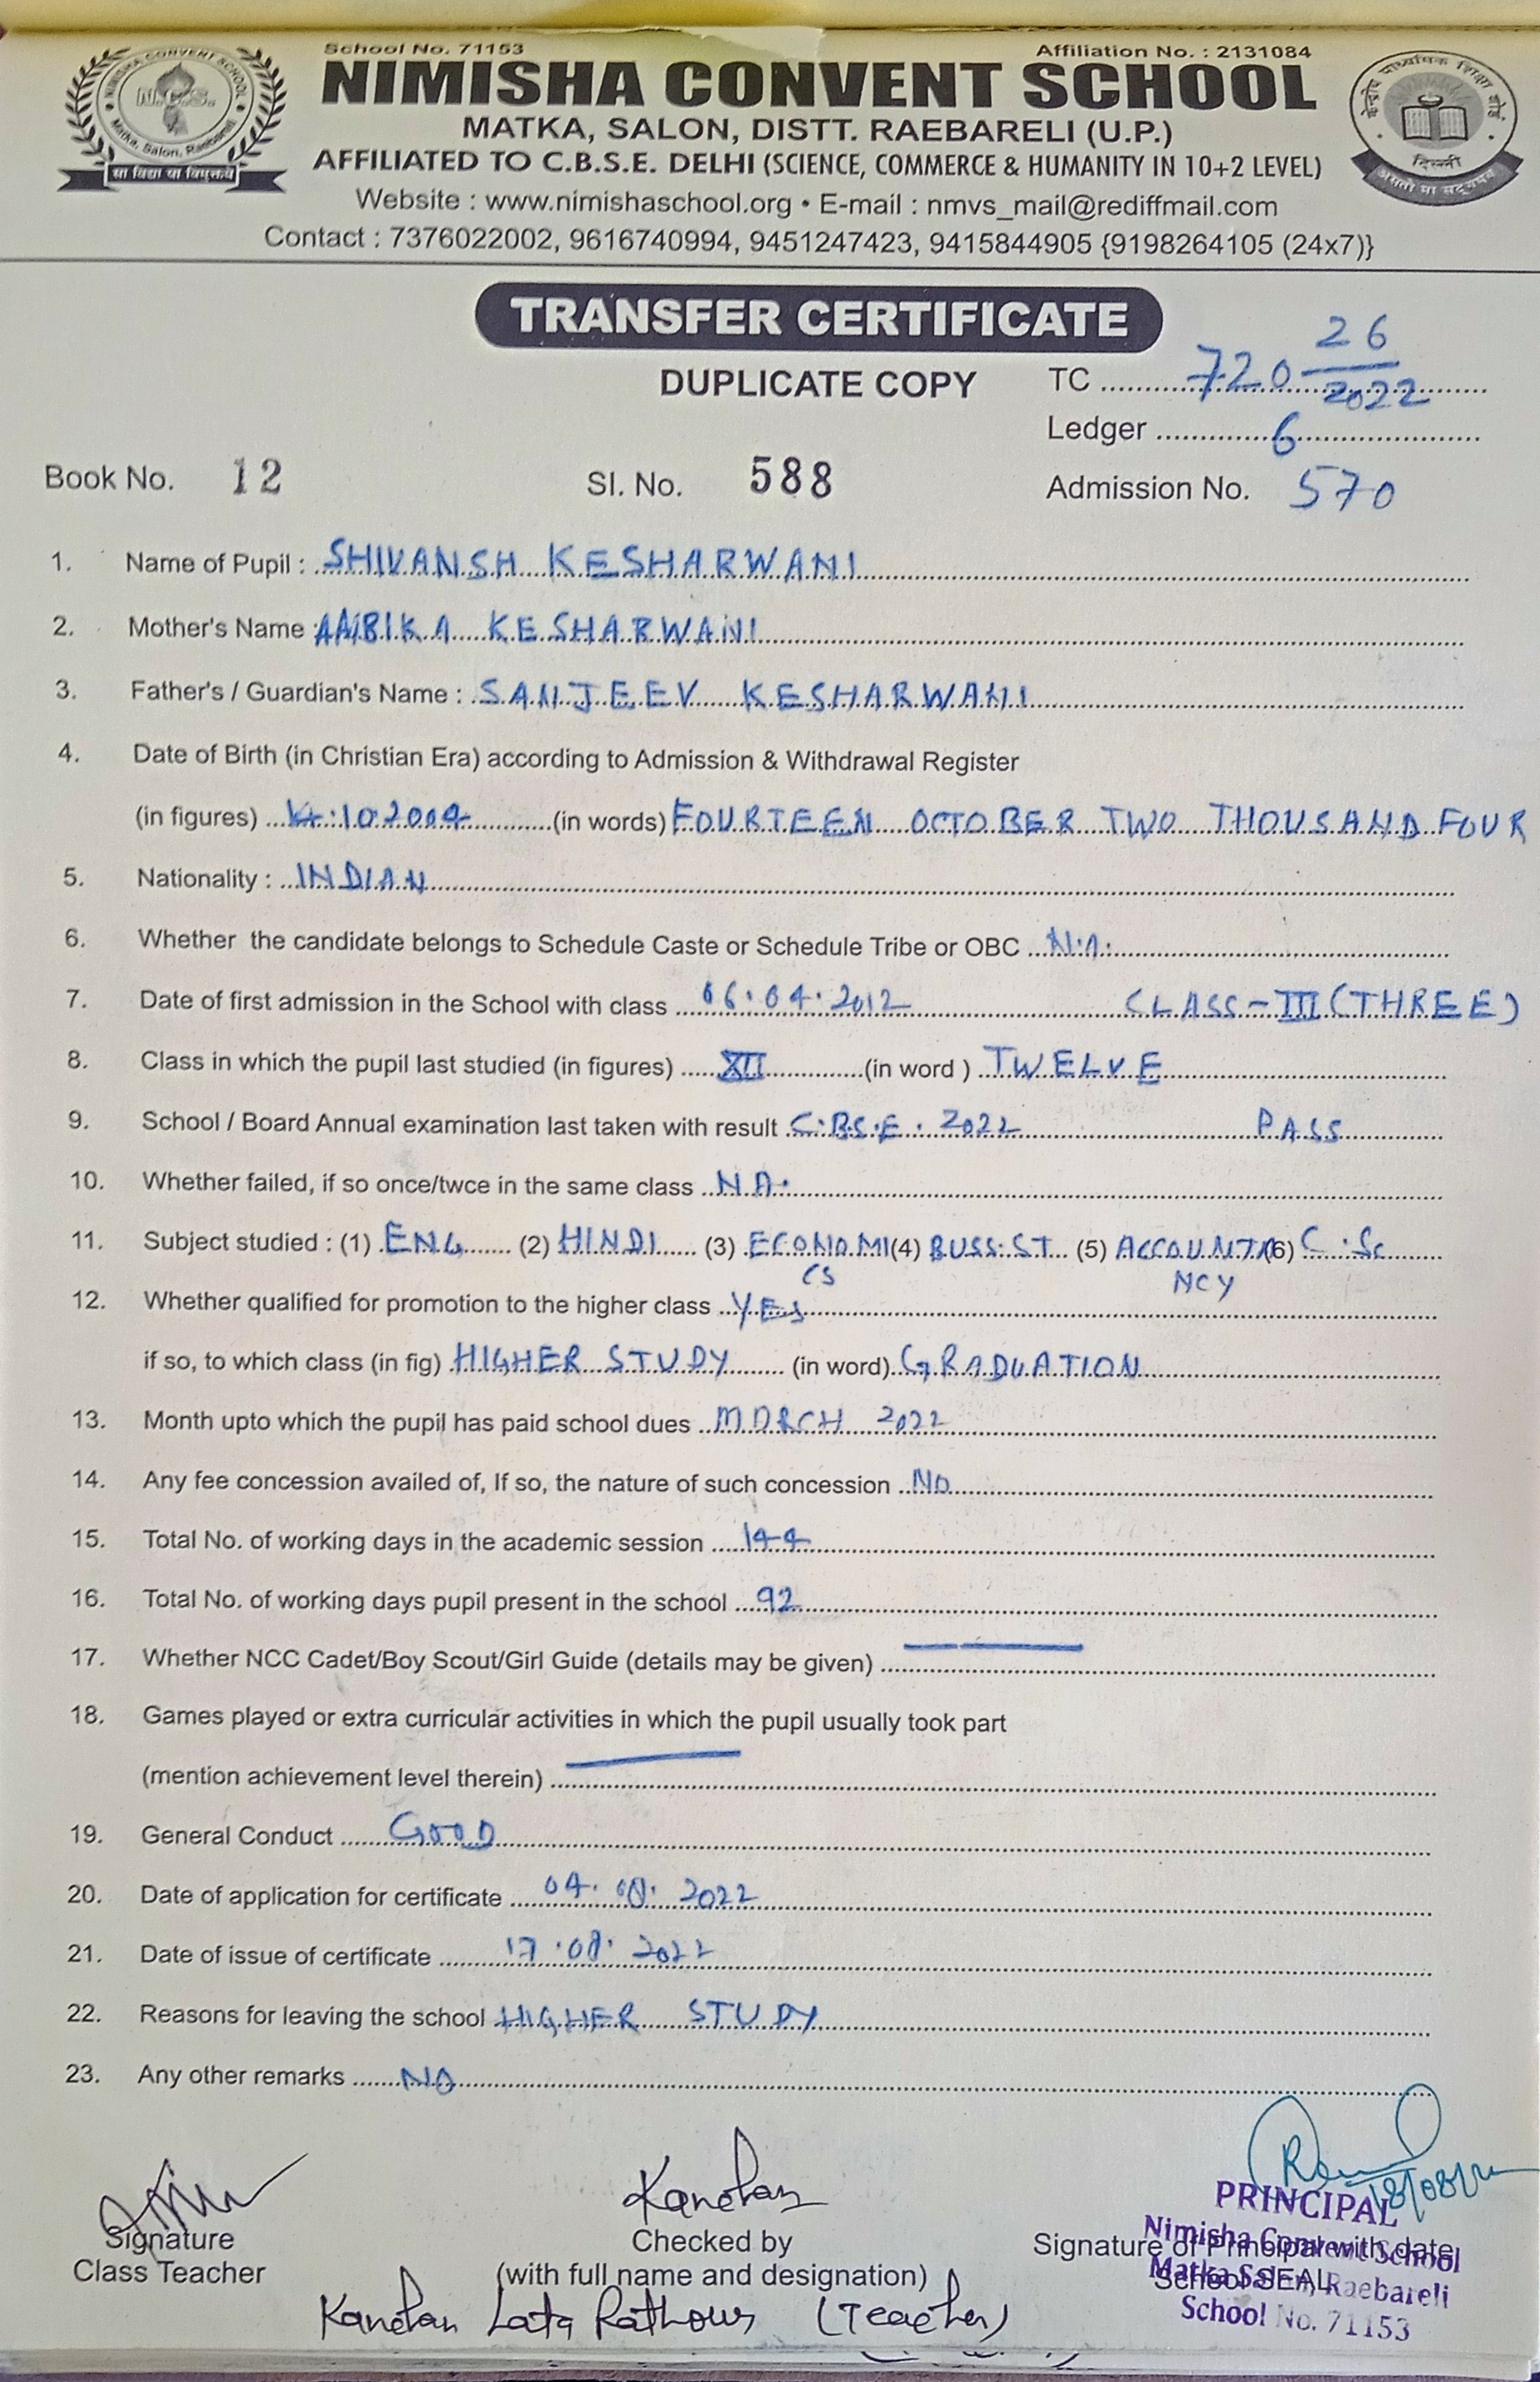 School No. 71153
Affiliation No. : 2131084
NIMISHA CONVENT SCHOOL
MATKA, SALON, DISTT. RAEBARELI (U.P.)
AFFILIATED TO C.B.S.E. DELHI (SCIENCE, COMMERCE & HUMANITY IN 10+2 LEVEL)
Website : www.nimishaschool.org • E-mail : nmvs_mail@rediffmail.com
Contact : 7376022002, 9616740994, 9451247423, 9415844905 {9198264105 (24x7)}
NIMISHA CONVENT SCHOOL
N.C.S.
Matka, Salon, Raebareli
सा विद्या या विमुक्तये
केन्द्रीय माध्यमिक शिक्षा बोर्ड
दिल्ली
असतो मा सद्गमय
TRANSFER CERTIFICATE
DUPLICATE COPY
TC 720 26/2022
Ledger 6
Book No. 12 Sl. No. 588 Admission No. 570
1. Name of Pupil : SHIVANSH KESHARWANI
2. Mother's Name : KESHARWANI
3. Father's / Guardian's Name : SANJEEV KESHARWANI
4. Date of Birth (in Christian Era) according to Admission & Withdrawal Register
(in figures) 14.10.2004 (in words) FOURTEEN OCTOBER TWO THOUSAND FOUR
5. Nationality : INDIAN
6. Whether the candidate belongs to Schedule Caste or Schedule Tribe or OBC N.A.
7. Date of first admission in the School with class 06.04.2012 CLASS-III (THREE)
8. Class in which the pupil last studied (in figures) XII (in word ) TWELVE
9. School / Board Annual examination last taken with result C.B.S.E. 2022 PASS
10. Whether failed, if so once/twce in the same class N.A.
11. Subject studied : (1) ENG (2) HINDI (3) ECONOMICS (4) BUSS.ST (5) ACCOUNTANCY (6) C.Sc
12. Whether qualified for promotion to the higher class YES
if so, to which class (in fig) HIGHER STUDY (in word) GRADUATION
13. Month upto which the pupil has paid school dues MARCH 2022
14. Any fee concession availed of, If so, the nature of such concession NO
15. Total No. of working days in the academic session 144
16. Total No. of working days pupil present in the school 92
17. Whether NCC Cadet/Boy Scout/Girl Guide (details may be given)
18. Games played or extra curricular activities in which the pupil usually took part
(mention achievement level therein)
19. General Conduct GOOD
20. Date of application for certificate 04. 08. 2022
21. Date of issue of certificate 17.08.2022
22. Reasons for leaving the school HIGHER STUDY
23. Any other remarks NO
Kanchan
18/08/22
PRINCIPAL
Nimisha Convent School
Matka Salon, Raebareli
School No. 71153
Signature
Class Teacher
Checked by
(with full name and designation)
Signature of Principal with date
School SEAL
Kanchan Lata Rathour (Teacher)